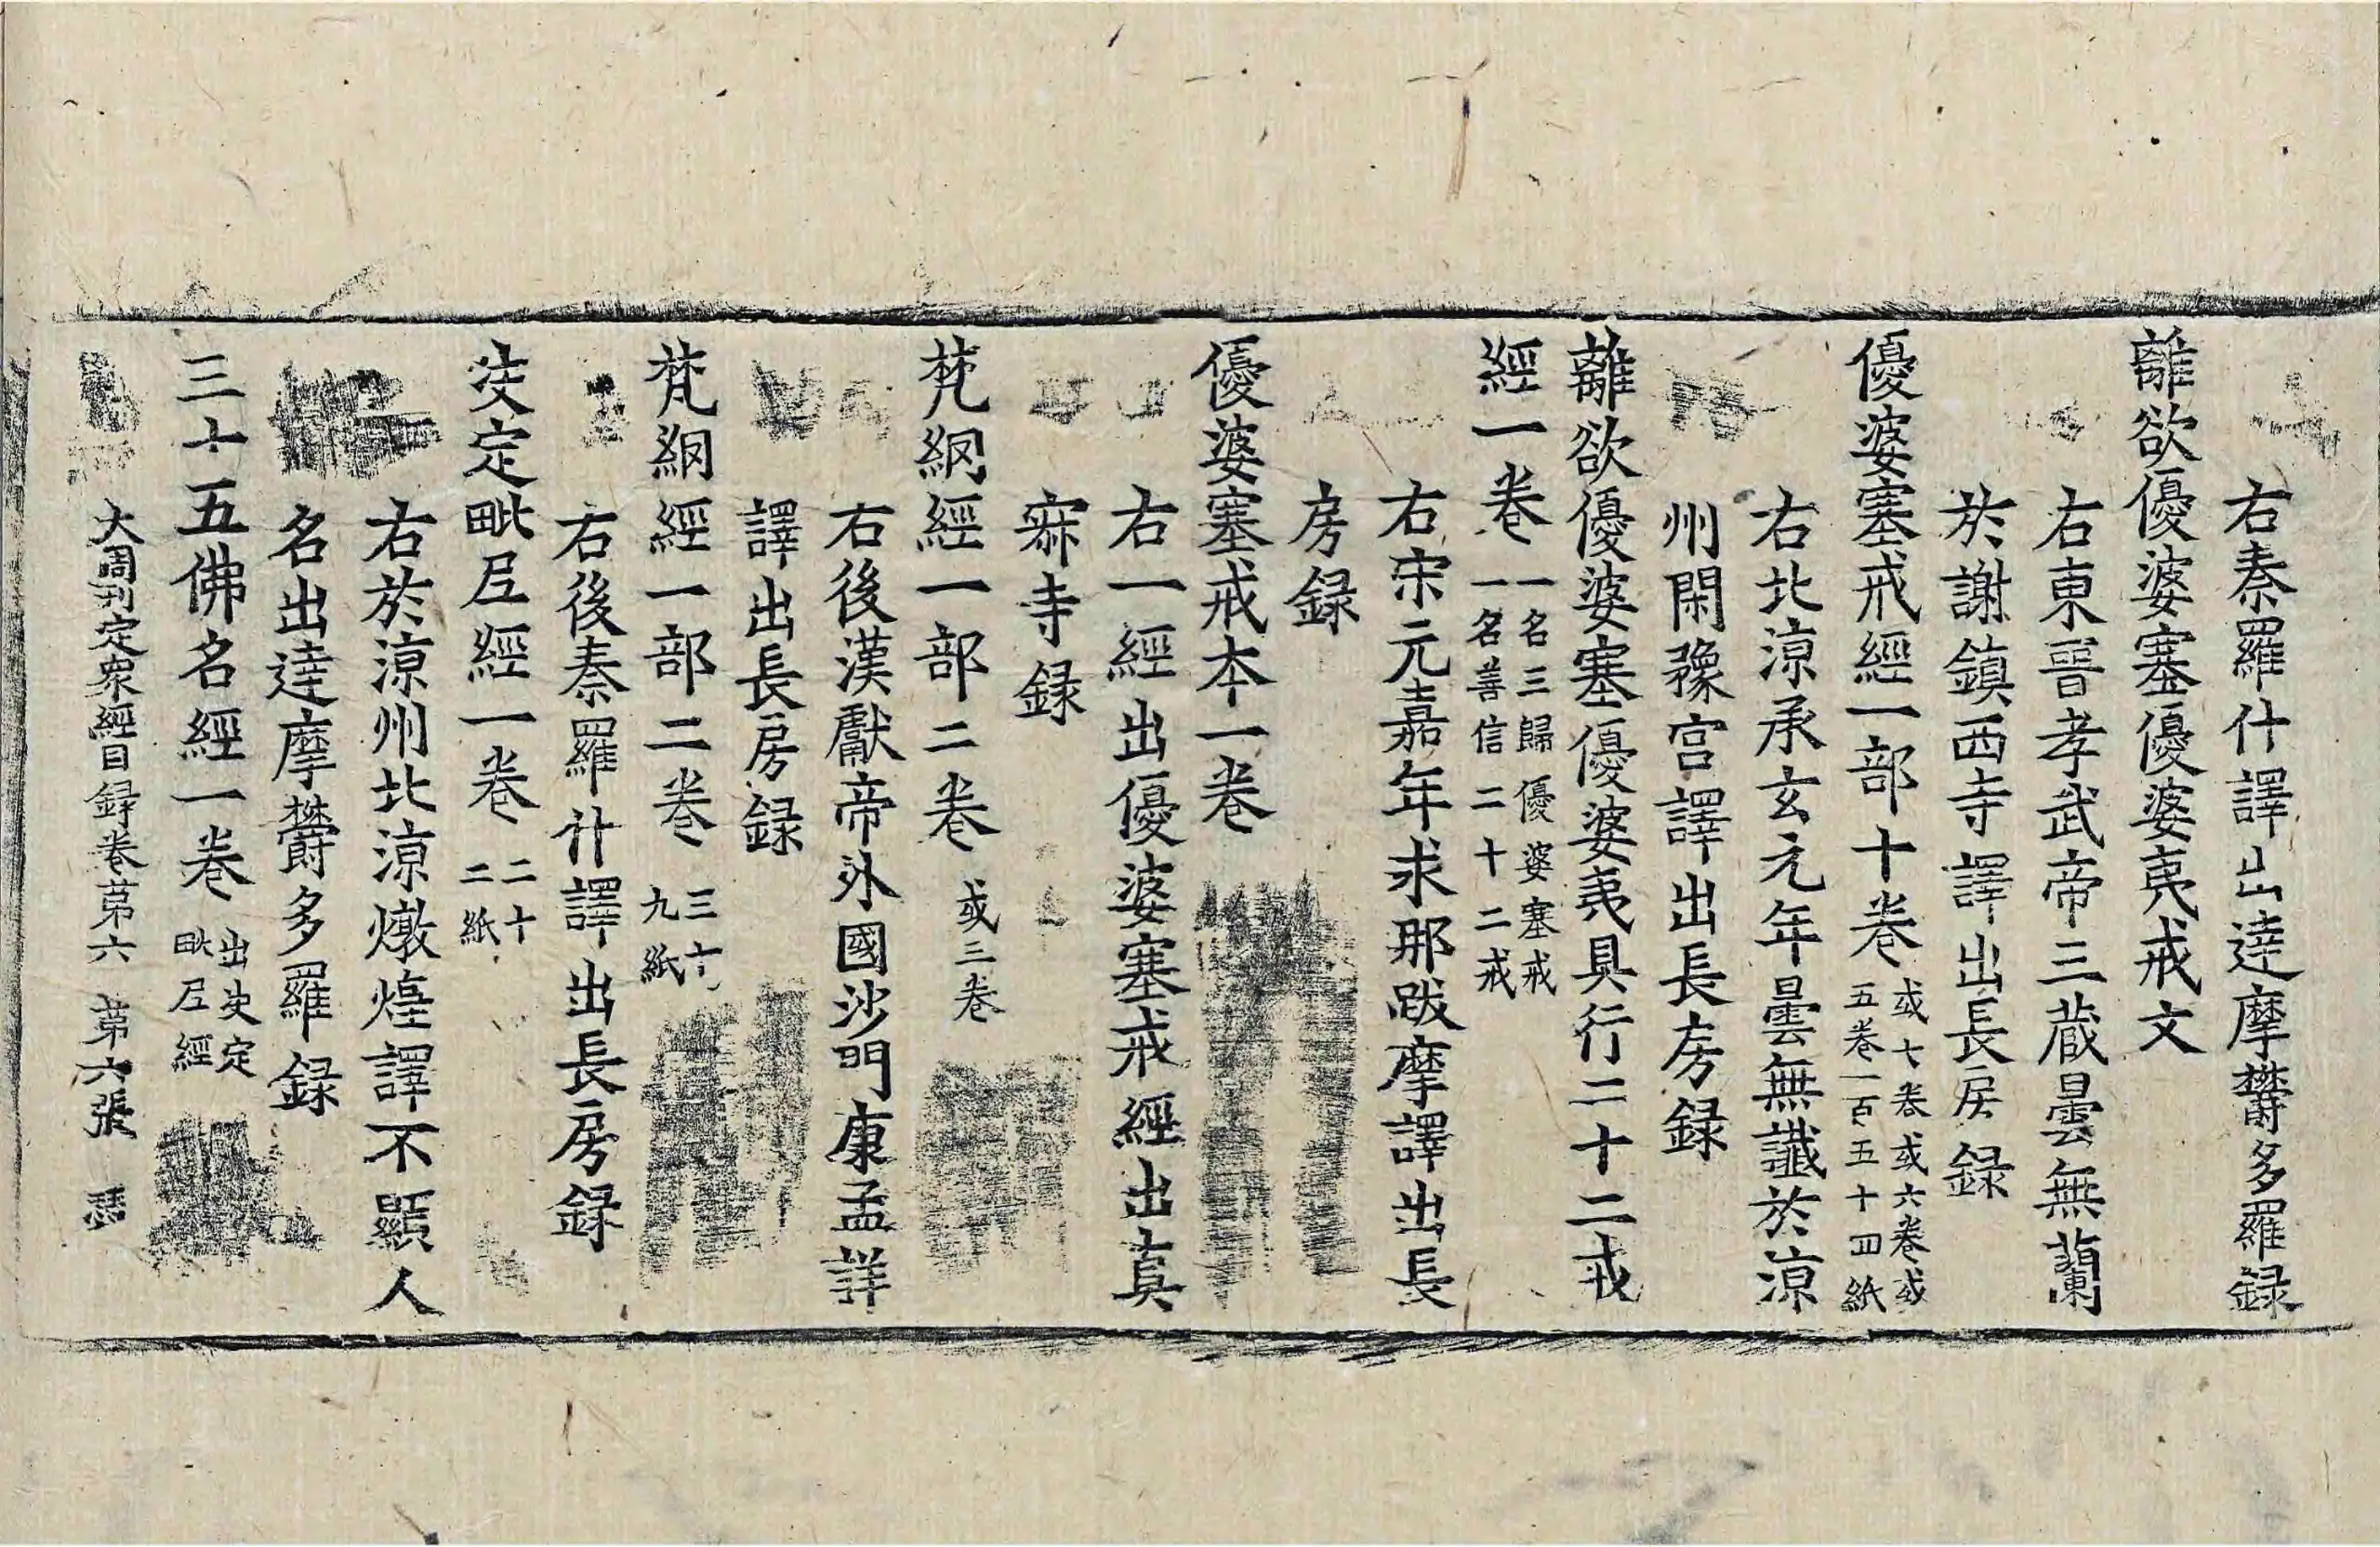 右秦羅什譯出達摩欝多羅録
離欲優婆塞優婆夷戒文
右東晉孝武帝三藏曇無蘭
於謝鎮西寺譯出長房録
優婆塞戒經一部十卷 或七卷或六卷或
五卷一百五十四紙
右北涼承玄元年曇無讖於涼
州閑豫宮譯出長房録
離欲優婆塞優婆夷具行二十二戒
經一卷 一名三歸優婆塞戒
一名善信二十二戒
右宋元嘉年求那跋摩譯出長
房録
優婆塞戒本一卷
右一經出優婆塞戒經出真
寂寺録
梵網經一部二卷 或三卷
右後漢獻帝外國沙門康孟詳
譯出長房録
梵網經一部二卷 三十
九紙
右後秦羅什譯出長房録
决定毗尼經一卷 二十
二紙
右於涼州北涼燉煌譯不顯人
名出達摩欝多羅録
三十五佛名經一卷 出决定
毗尼經
大周刊定衆經目録卷第六 第六張 瑟